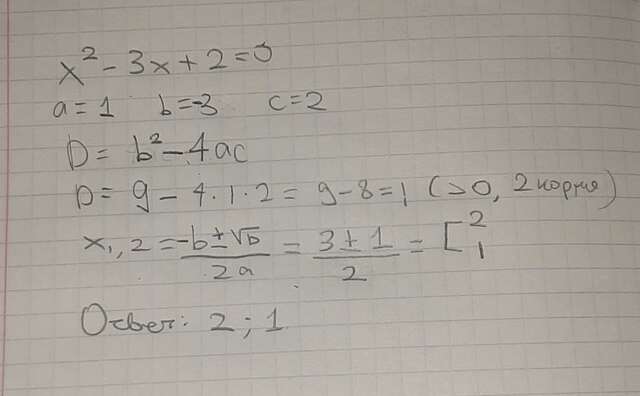 x² - 3x + 2 = 0
a = 1 b = -3 c = 2
D = b² - 4ac
D = 9 - 4 · 1 · 2 = 9 - 8 = 1 (>0, 2 корня)
x₁,₂ = (-b ± √D)/(2a) = (3 ± 1)/2 = [ 2 1
Ответ: 2; 1